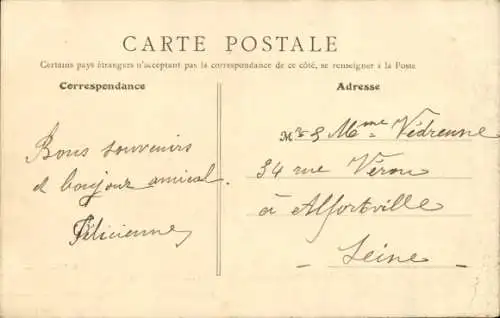 CARTE POSTALE
Certains pays étrangers n'acceptant pas la correspondance de ce côté, se renseigner à la Poste
Correspondance
Adresse
Bons souvenirs
et bonjour amical.
Félicienne
M. & Mme Védrenne
34 rue Véron
à Alfortville
Seine